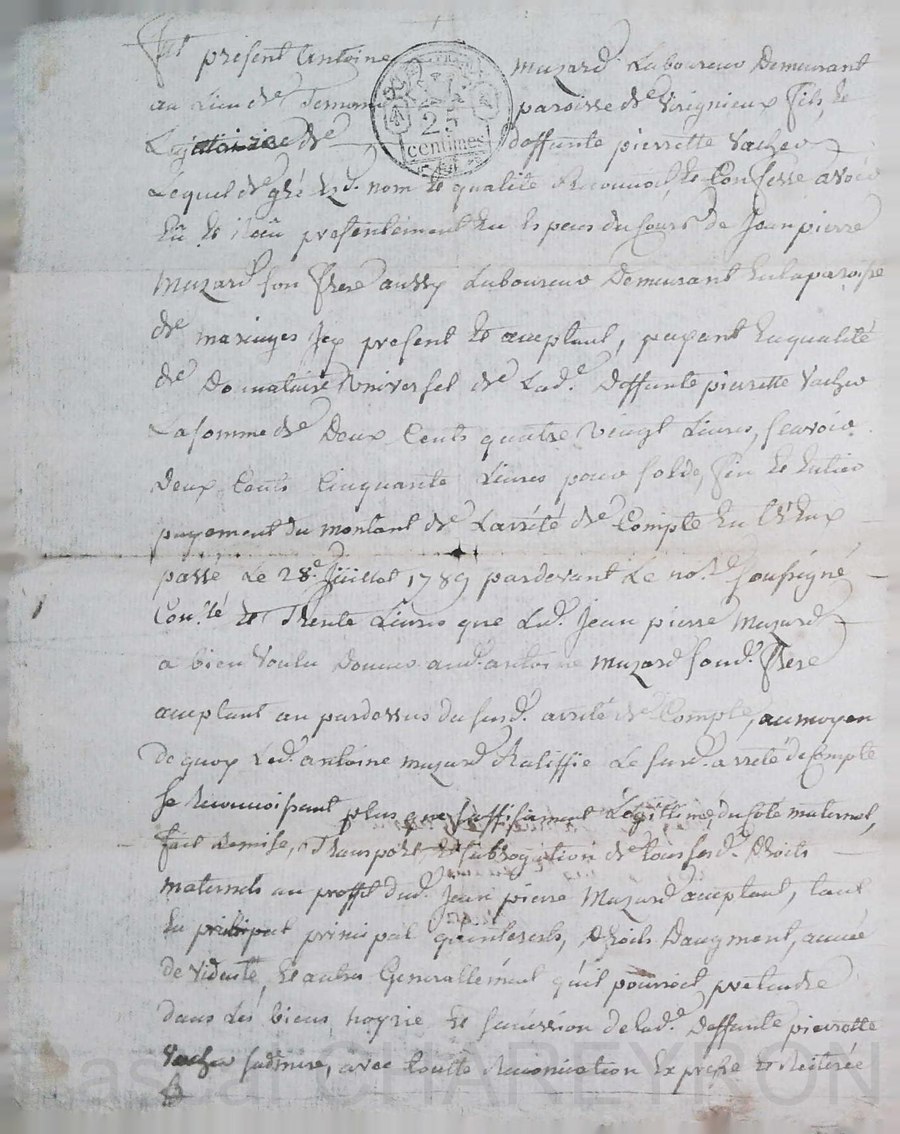 Fut présent Antoine Muzard Laboureur Demeurant
au Lieu de paroisse de Virignieux fils et
Legataire de deffunte pierrette Vacher
Lequel de gré Esd. nom et qualité Reconnoit et Confesse avoir
Eû et Reçû présentement En Espèces du Cours de Jean pierre
Muzard son frere aussy Laboureur Demeurant En la paroisse
de maringes Icy présent et aceptant, payant En qualité
de Donnataire Universel de Lad.e deffunte pierrette Vacher
La somme de Deux Cents quatre Vingt Livres, scavoir
Deux Cents Cinquante Livres pour solde, fin et Entier
payement du montant de L'arrété de Compte Entr'Eux
passé Le 28.e Jüillet 1789 pardevant Le no.re soussigné
Con.lé et Trente Livres que Led. Jean pierre Muzard
a bien Voulu Donner aud. antoine Muzard sond. frere
aceptant au pardessus du susd. arrété de Compte, au moyen
de quoy Led. antoine Muzard Ratiffie Le susd. arrété de Compte
se Reconnoissant plus que suffisament Légittimé du Coté maternel,
fait Remise, Transport et subrogation de tous sesd. Droits
maternels au proffit dud. Jean pierre Muzard aceptant, tant
En principal qu'interests, Droits D'augment, année
de Viduité, et autres Generallement qu'il pourroit prétendre
dans Les biens, hoyrie et sucession de lad.e deffunte pierrette
Vacher sa mere, avec toutte Renonciation Expresse et Réiterée
25
centimes
Pascal CHAREYRON